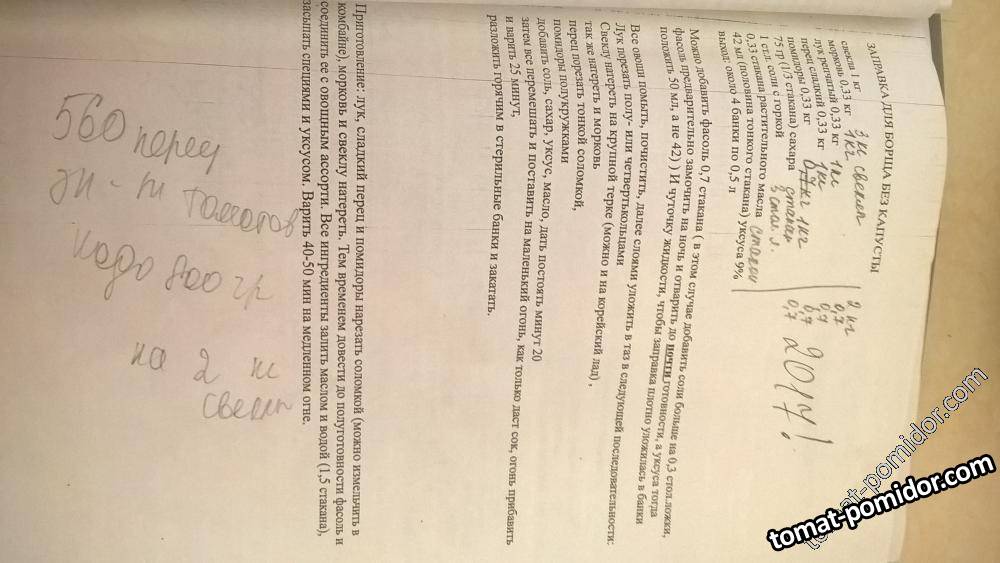 ЗАПРАВКА ДЛЯ БОРЩА БЕЗ КАПУСТЫ
свекла 1 кг 3 кг свеклы 2 кг
морковь 0,33 кг 1 кг 0,7
лук репчатый 0,33 кг 1 кг 0,7
перец сладкий 0,33 кг 1 кг 0,7
помидоры 0,33 кг 1 кг 0,7
75 гр (1/3 стакана) сахара стакан
1 ст.л. соли с горкой 3 стол. л.
0,33 стакана растительного масла стакан
42 мл (половина тонкого стакана) уксуса 9%
выход: около 4 банки по 0,5 л
2017!
Можно добавить фасоль 0,7 стакана ( в этом случае добавить соли больше на 0,3 стол.ложки,
фасоль предварительно замочить на ночь и отварить до почти готовности, а уксуса тогда
положить 50 мл, а не 42) ) И чуточку жидкости, чтобы заправка плотно уложилась в банки
Все овощи помыть, почистить, далее слоями уложить в таз в следующей последовательности:
Лук порезать полу- или четвертькольцами
Свеклу натереть на крупной терке (можно и на корейский лад) ,
так же натереть и морковь
перец порезать тонкой соломкой,
помидоры полукружками
добавить соль, сахар, уксус, масло , дать постоять минут 20
затем все перемешать и поставить на маленький огонь, как только даст сок, огонь прибавить
и варить 25 минут,
разложить горячим в стерильные банки и закатать.
Приготовление: лук, сладкий перец и помидоры нарезать соломкой (можно измельчить в
комбайне), морковь и свеклу натереть. Тем временем довести до полуготовности фасоль и
соединить ее с овощным ассорти. Все ингредиенты залить маслом и водой (1,5 стакана),
засыпать специями и уксусом. Варить 40-50 мин на медленном огне.
560 перец
томатов
надо 800 гр
на 2 кг
свеклы
tomat-pomidor.com
tomat-pomidor.com
tomat-pomidor.com